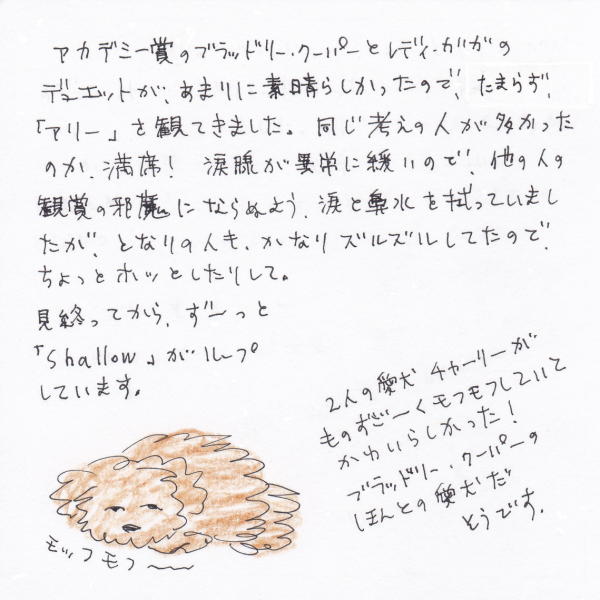 アカデミー賞のブラッドリー・クーパーとレディ・ガガの
デュエットが、あまりに素晴らしかったので、たまらず、
「アリー」を観てきました。同じ考えの人が多かった
のか、満席！ 涙腺が異常に緩いので、他の人の
観賞の邪魔にならぬよう、涙と鼻水を拭っていまし
たが、となりの人も、かなりズルズルしてたので、
ちょっとホッとしたりして。
見終ってから、ず〜っと
「Shallow」がループ
しています。
2人の愛犬 チャーリーが
ものすご〜くモフモフしていて
かわいらしかった！
ブラッドリー・クーパーの
ほんとの愛犬だ
そうです。
モッフモフ〜